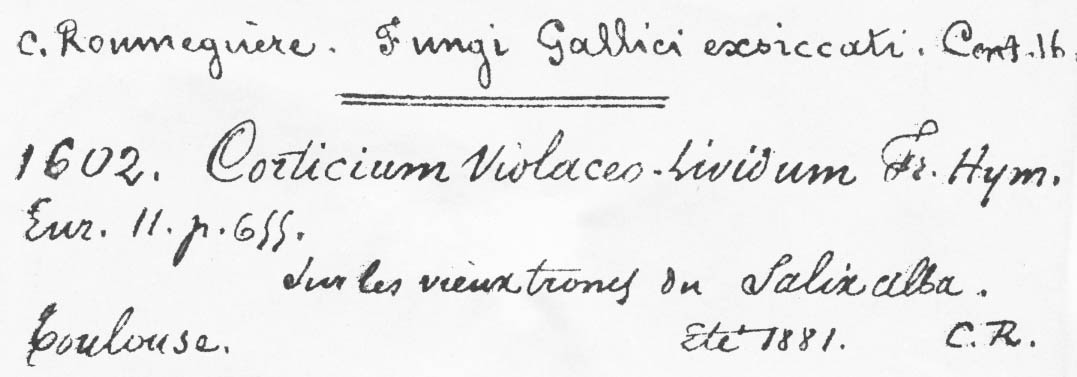 C. Roumeguère. Fungi Gallici exsiccati. Cent. 16.
1602. Corticium Violaceo-lividum Fr. Hym.
Eur. 11. p. 655.
Sur les vieux troncs du Salix alba.
Toulouse. Eté 1881. C. R.